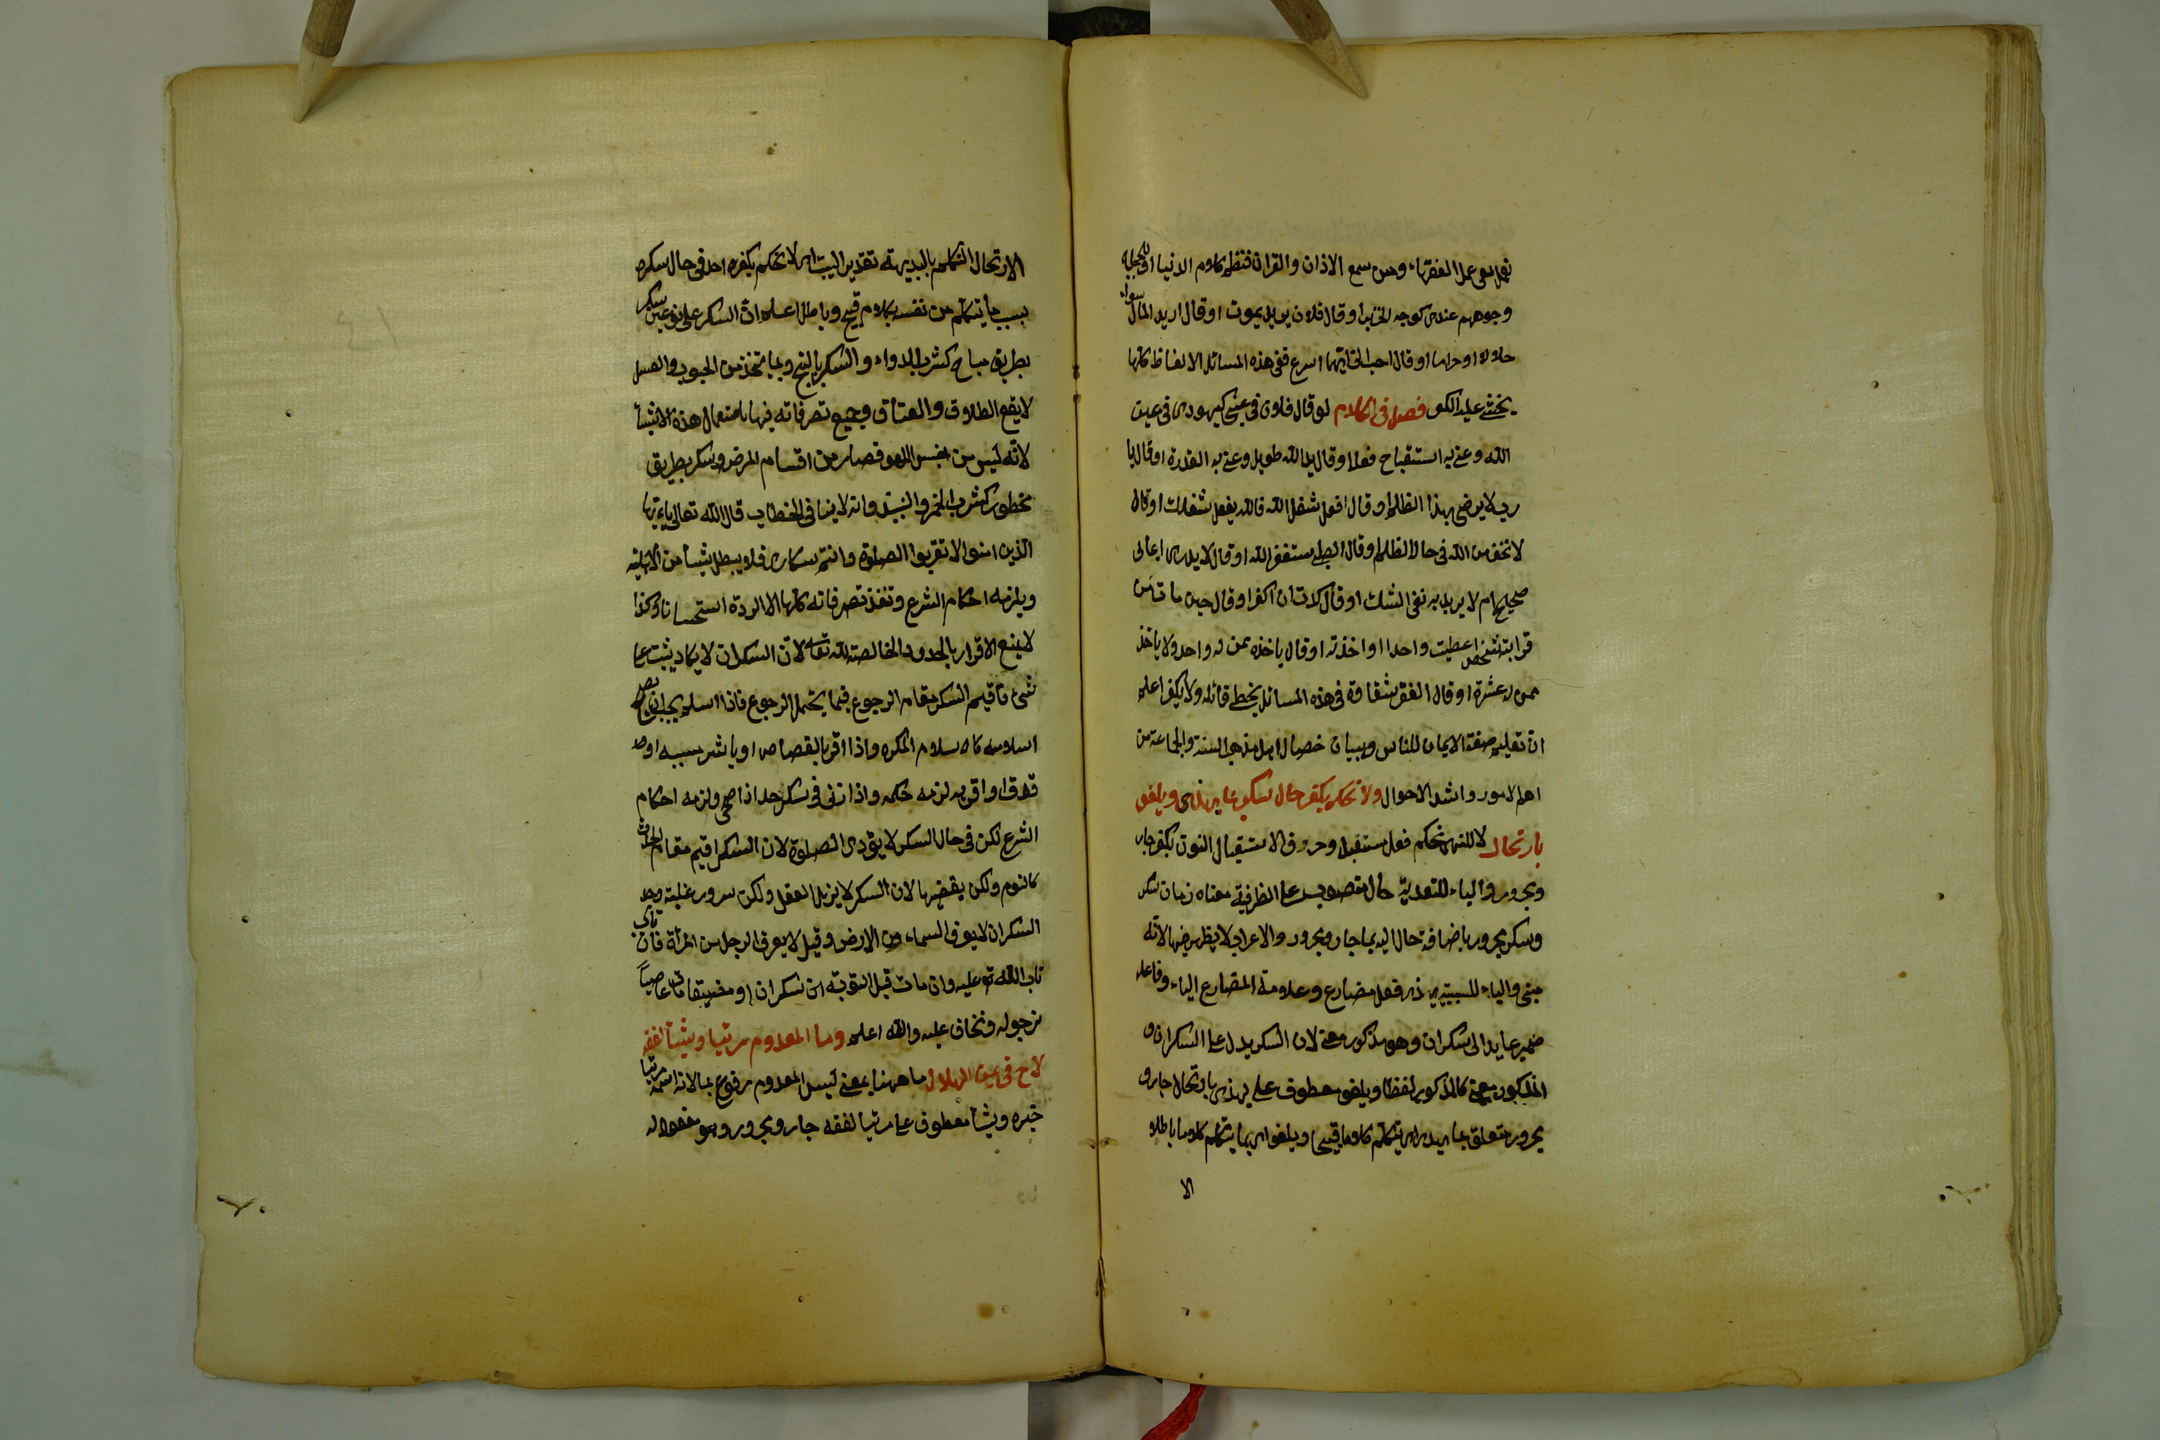 نعل على عمل الفقهاء ومن سمع الاذان والقران فتكلم بكلام الدنيا او
وجوههم عندى كوجه الخنزير او قال فلان يريد يموت او قال اريد المال سواء
حلالا او حراما او قال احب الى ايهما اسرع ففى هذه المسائل الالفاظ كلها
يخشى عليه الكفر فصل فى الكلام لو قال فلان فى عينى كيهودى فى عين
الله وعنى به استقباح فعله او قال يد الله طويل وعنى به القدرة او قال يا
رب لا يرضى بهذا الظلم او قال افعل شغل الله فالله يفعل شغلك او قال
لا تخف من الله فى حال الظلم او قال ستغفر الله او قال لا يدرى ايمانى
صحيح ام لا يريد به نفى الشك او قال كدت ان اكفر او قال حين مات من
قرابته شخص اعطيت واحدا واخذته او قال ياخذه ممن له واحد ولا ياخذ
ممن له عشرة او قال الفقر شقاوة فى هذه المسائل يخطى قائله ولا يكفر اعلم
ان تعليم صفة الايمان للناس وبيان خصال اهل مذهب السنة والجماعة من
اهم الامور واشد الاحوال ولا تحكم بكفر حال سكر بما يهذى ويلغو
بارتجال لا للنهى تحكم فعل مستقبل وحروف الاستقبال النون بكفر جار
ومجرور والباء للتعدية حال منصوب على الظرفية معناه زمان سكر
وسكر مجرور باضافة حال اليه بما جار ومجرور والاعراب لا يظهر فيها لانه
مبنى والباء للسببية يهذى فعل مضارع وعلامة المضارع الياء وفاعله
ضمير عايد الى سكران وهو مذكور معنى لان السكر يدل على السكران و
المذكور معنى كالمذكور لفظا ويلغو معطوف على يهذى بارتجال جار و
مجرور متعلق بما يهذى اى يتكلم كلاما قبيحا ويلغو اى بما يتكلم كلاما باطلا
الا
الارتجال التكلم بالبديهة تقدير البيت اى لا تحكم بكفر احد فى حال سكره
بسبب ما يتكلم من نفسه بكلام قبيح وباطل اعلم ان السكر على نوعين سكر
بطريق مباح كشرب الدواء والسكر بالبنج وبما يتخذ من الحبوب والعسل
لا يقع الطلاق والعتاق وجميع تصرفاته فيها باستعمال هذه الاشيأ
لانه ليس من جنس اللهو فصار من اقسام المرض وسكر بطريق
محظور كشرب الخمر والنبيذ وانه لا ينافى الخطاب قال الله تعالى يا ايها
الذين امنوا لا تقربوا الصلوة وانتم سكارى فلا يبطل شيأ من الاهلية
ويلزمه احكام الشرع وتنفذ تصرفاته كلها الا الردة استحسانا وكذا
لا يمنع الاقرار بالحدود الخالصة لله تعالى لان السكران لا يكاد يثبت على
شئ فاقيم السكر مقام الرجوع فيما يحتمل الرجوع فاذا اسلم يجب ان يصح
اسلامه كاسلام المكره واذا اقر بالقصاص او باشر سببه او
قذف او اقر به لزمه حكمه واذا زنى فى سكره حد اذا صحى ولزمه احكام
الشرع لكن فى حال السكر لا يؤدى الصلوة لان السكر اقيم مقام
كالنوم ولكن يقضيها لان السكر لا يزيل العقل ولكن سرور غلبه وحد
السكران لا يعرف السماء من الارض وقيل لا يعرف الرجل من المرأة فان تاب
تاب الله عليه وان مات قبل التوبة ان سكران او مفيقا مات عاصيا
نرجو له ونخاف عليه والله اعلم وما المعدوم مرئيا وشيئا لفقه
لاح فى يمن الهلال ما ههنا بمعنى ليس المعدوم مرفوع بما لانه اسمه مرئيا
خبره وشيأ معطوف على مرئيا لفقه جار ومجرور وهو مفعول له